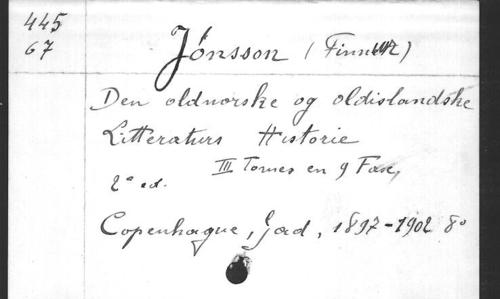 445
67
Jónsson (Finnur)
Den oldnorske og oldislandske
Litteraturs Historie
III Tomes en 9 Fasc,
2ª ed.
Copenhague, Gad, 1897-1902 8º